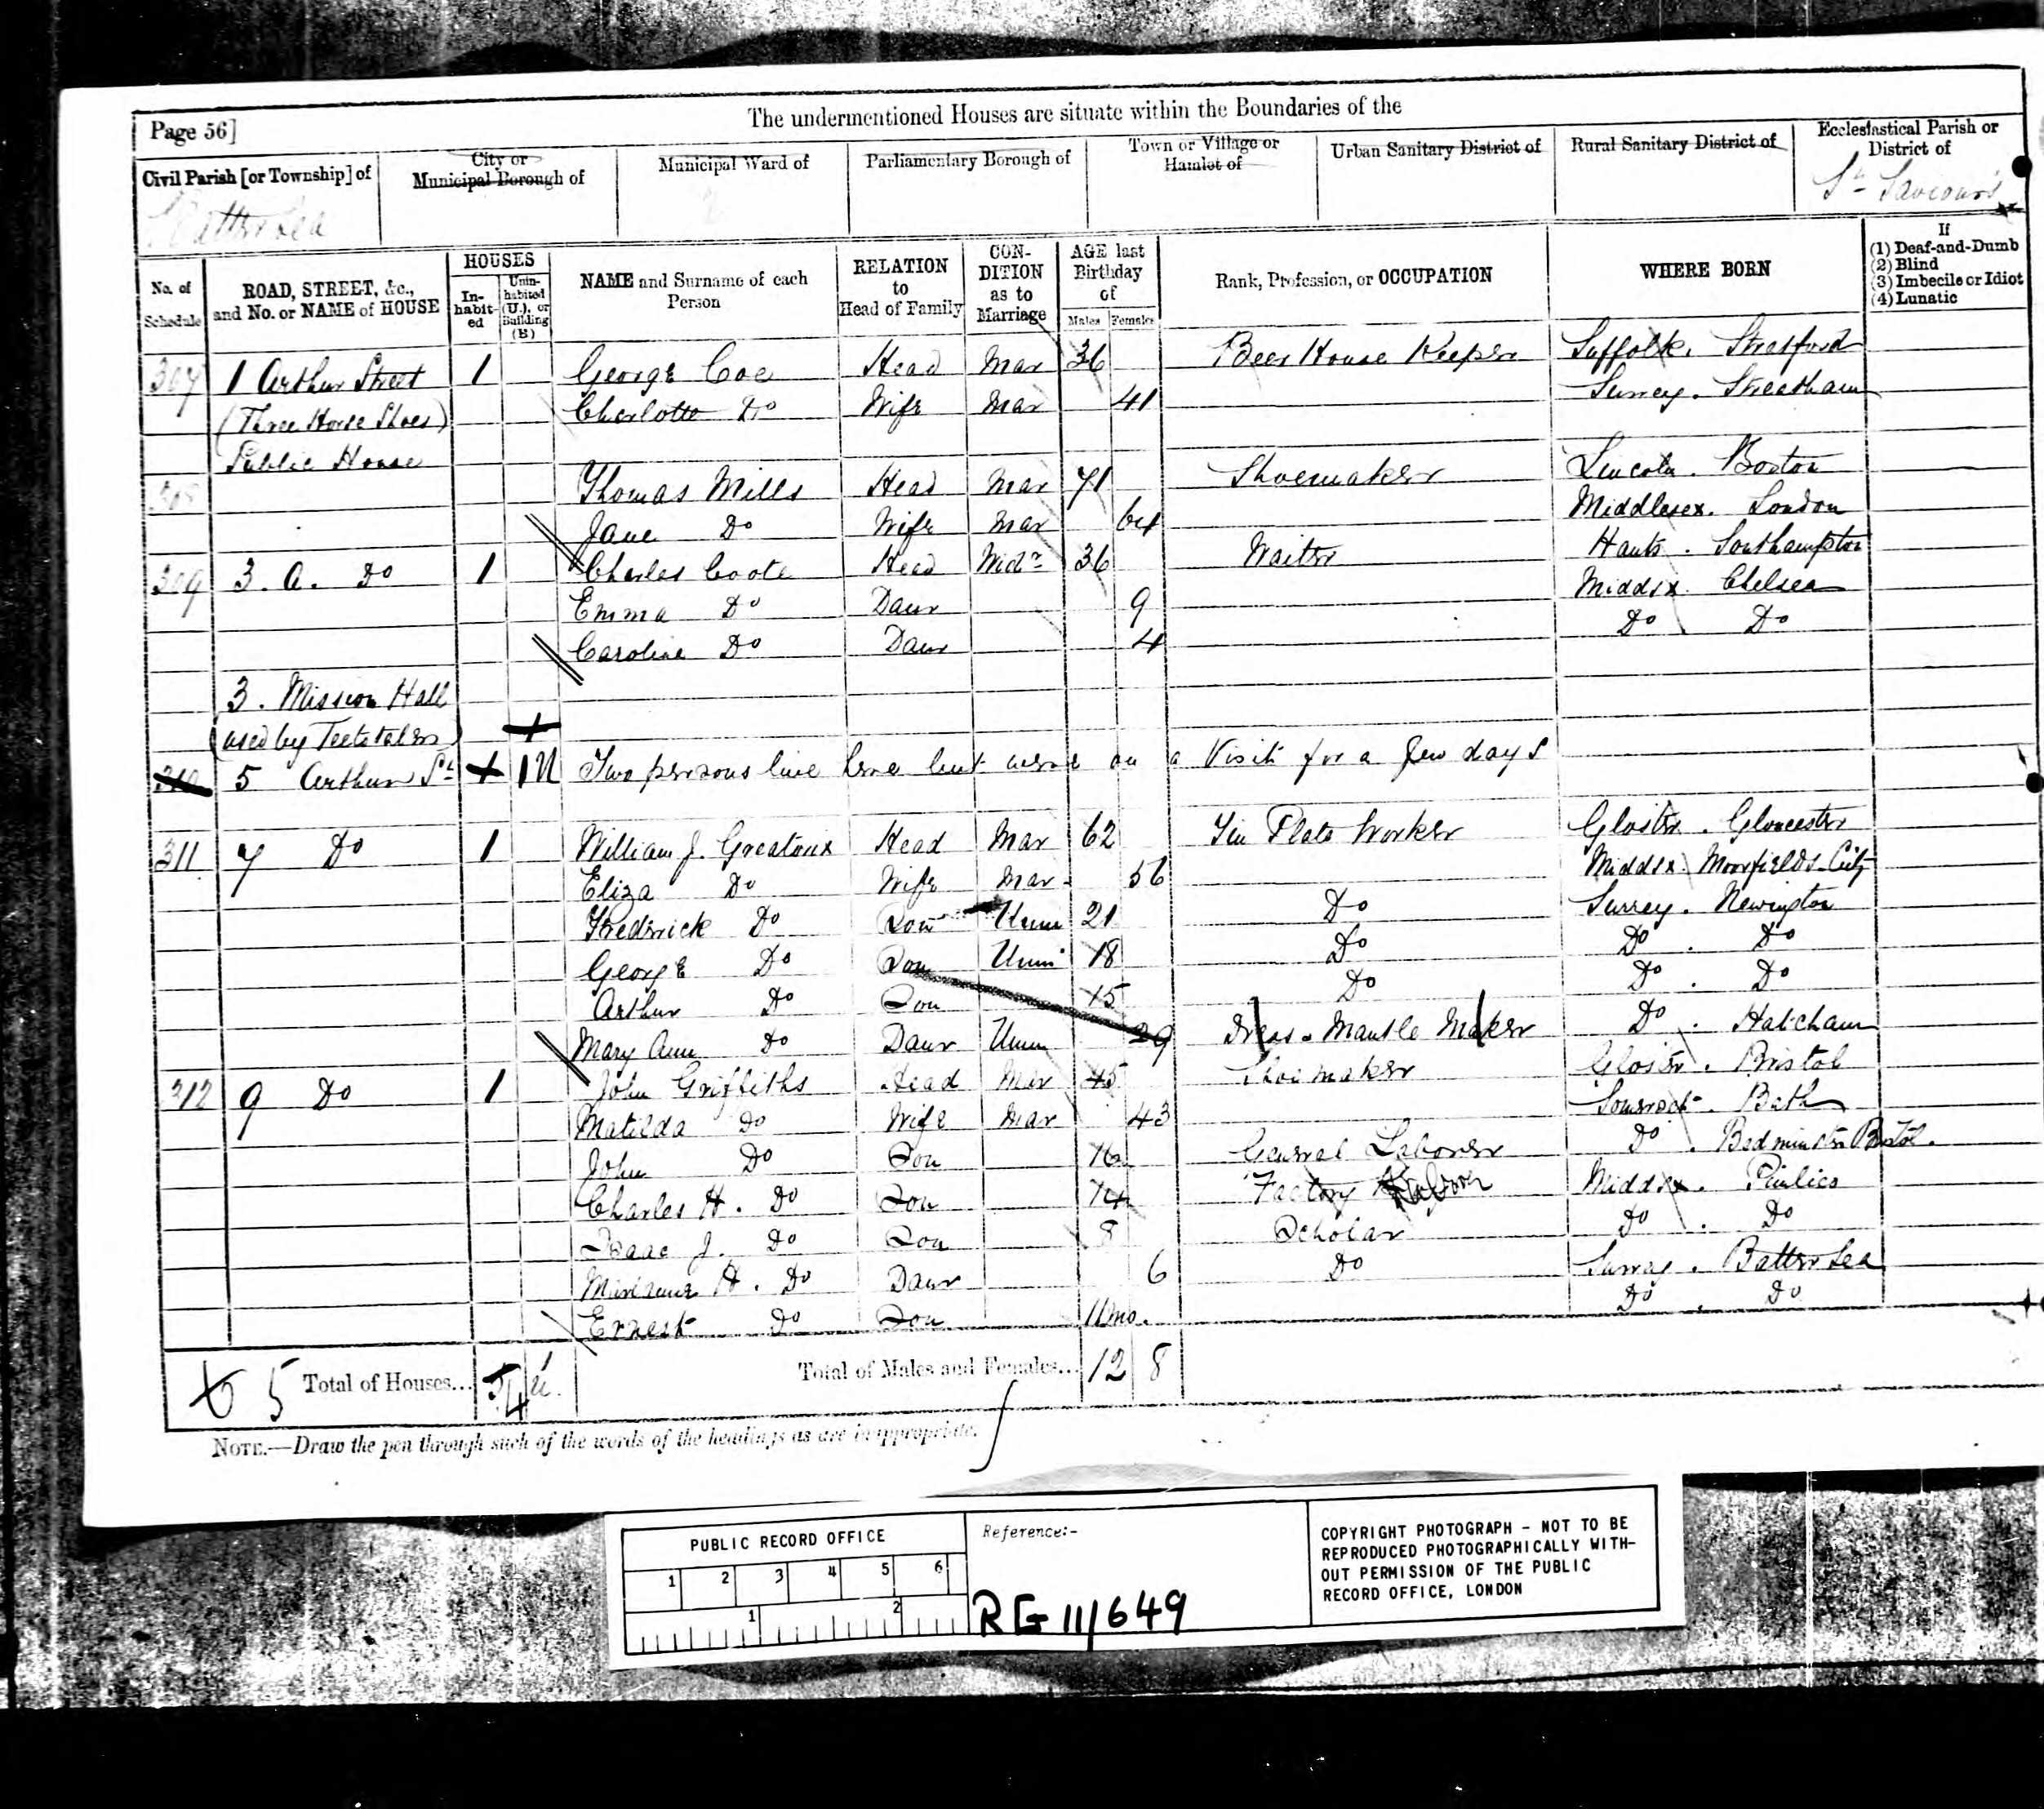 The undermentioned Houses are situate within the Boundaries of the
Page 56]
Civil Parish [or Township] of
City or Municipal Borough of
Municipal Ward of
Parliamentary Borough of
Town or Village or Hamlet of
Urban Sanitary District of
Rural Sanitary District of
Ecclesiastical Parish or District of
Battersea
St Saviour's
No. of Schedule
ROAD, STREET, &c., and No. or NAME of HOUSE
HOUSES
In-habit-ed
Unin-habited (U.), or Building (B)
NAME and Surname of each Person
RELATION to Head of Family
CON-DITION as to Marriage
AGE last Birthday of
Males Females
Rank, Profession, or OCCUPATION
WHERE BORN
If
(1) Deaf-and-Dumb
(2) Blind
(3) Imbecile or Idiot
(4) Lunatic
307 1 Arthur Street 1 George Coe Head Mar 36 Beer House Keeper Suffolk. Stratford
(Three Horse Shoes) Charlotte Do Wife Mar 41 Surrey. Streatham
Public House
308 Thomas Mills Head Mar 71 Shoemaker Lincoln. Boston
Jane Do Wife Mar 64 Middlesex. London
309 3. A. Do 1 Charles Coote Head Widr 36 Waiter Hants. Southampton
Emma Do Daur 9 Middsx. Chelsea
Caroline Do Daur 4 Do Do
3. Mission Hall
(used by Teetotalers)
310 5 Arthur St 1 U Two persons live here but were on a Visit for a few days
311 7 Do 1 William J. Greatorix Head Mar 62 Tin Plate Worker Gloster. Gloucester
Eliza Do Wife Mar 56 Middsx Moorfields City
Fredrick Do Son Unm 21 Do Surrey. Newington
George Do Son Unm 18 Do Do. Do
Arthur Do Son 15 Do Do. Do
Mary Ann Do Daur Unm 29 Dress & Mantle Maker Do. Hatcham
312 9 Do 1 John Griffiths Head Mar 45 Shoemaker Gloster. Bristol
Matilda Do Wife Mar 43 Somerset. Bath
John Do Son 16 General Laborer Do. Bedminster Bristol.
Charles H. Do Son 14 Factory Labour Middsx. Pimlico
Isaac J. Do Son 8 Scholar Do. Do
H. Do Daur 6 Do Surrey. Battersea
Ernest Do Son 11 mo. Do. Do
5 Total of Houses... 4 Total of Males and Females... 12 8
NOTE.—Draw the pen through such of the words of the headings as are inappropriate.
PUBLIC RECORD OFFICE
1 2 3 4 5 6
1 2
Reference:-
RG 11/649
COPYRIGHT PHOTOGRAPH - NOT TO BE
REPRODUCED PHOTOGRAPHICALLY WITH-
OUT PERMISSION OF THE PUBLIC
RECORD OFFICE, LONDON